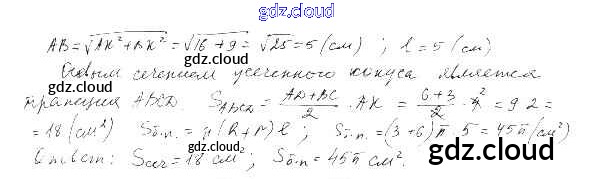 gdz.cloud
AB = √AK² + BK² = √16 + 9 = √25 = 5 (см) ; l = 5 (см)
gdz.cloud
Осевым сечением усеченного конуса является
gdz.cloud
трапеция ABCD. S_ABCD = AD+BC/2 · AK = 6+3/2 · 4² = 9 2 =
gdz.cloud
= 18 (см²) Sб.п. = π (R + r) l ; Sб.п. = (3 + 6) π · 5 = 45π (см²)
gdz.cloud
Ответ: Sсеч = 18 см² ; Sб.п. = 45π см².
gdz.cloud